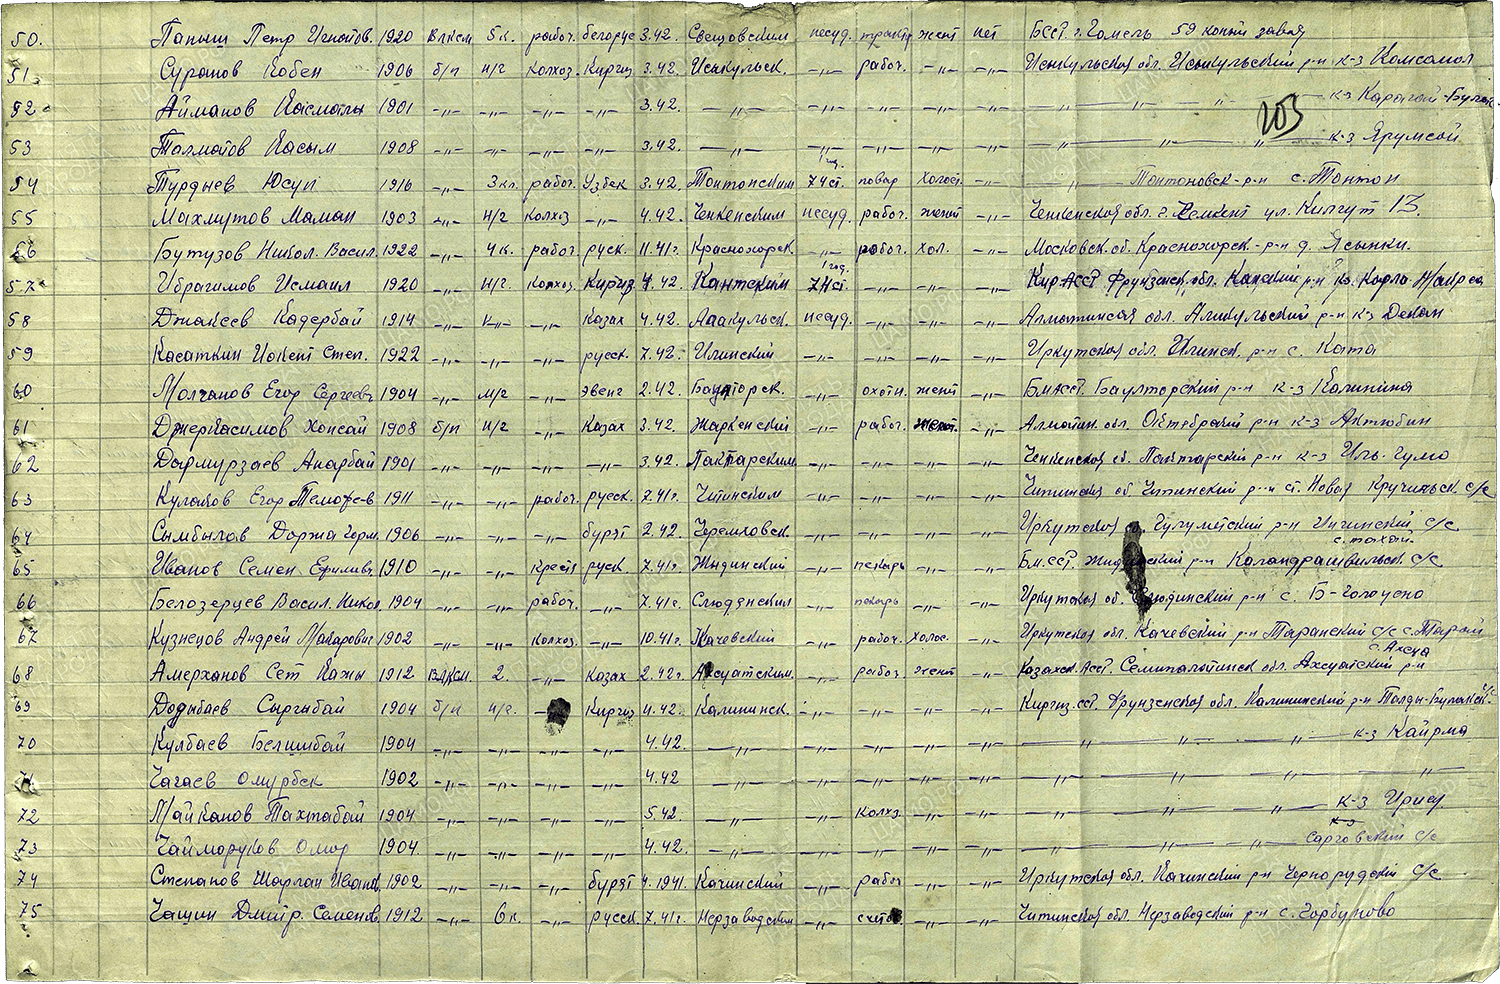 50. Папыш Петр Игнатов. 1920 ВЛКСМ 5 к. рабоч. белорус 3.42. Свещовским несуд. тракт жент нет БССР. г. Гомель 59 конный завод
51. Суранов Кобен 1906 б/п н/г Колхоз. Киргиз 3.42. Исыкульск. -„- рабоч. -„- -„- Исыкульская обл. Исыкульский р-н к-з Комсомол
52 Айманов Касмалы 1901 -„- -„- -„- -„- 3.42. -„- -„- -„- -„- -„- -„- к-з Карагай-Булак
203
53 Талматов Касым 1908 -„- -„- -„- -„- 3.42. -„- -„- -„- -„- -„- -„- к-з Ярумсай
54 Турдыев Юсуп 1916 -„- 3 кл. рабоч. Узбек 3.42. Тонтонским 1 год. 74 ст. повар Холост. -„- -„- Тонтоновск-р-н с. Тонтон
55 Махмутов Маман 1903 -„- н/г Колхоз -„- 4.42. Чемкенским несуд. рабоч. жент -„- Чемкенская обл. г. Чемкент ул. Килгут 13.
56 Бутузов Никол. Васил. 1922 -„- 4 к. рабоч. руск. 11.41г. Красногорск -„- рабоч. хол. -„- Московск. об. Красногорск-р-н д. Ясынки.
57 Ибрагимов Исмаил 1920 -„- н/г. Колхоз. Киргиз 4.42 Кантским 1 год. 74 ст. -„- -„- -„- Кир АССР Фрунзенск. обл. Канский р-н к-з Карла Маркса
58 Джакеев Кадербай 1914 -„- -„- -„- Казах 4.42. Алакульск. несуд. -„- -„- -„- Алматинская обл. Алакульский р-н к-з Декан
59 Касаткин Инкент Степ. 1922 -„- -„- -„- русск. 7.42. Илинский -„- -„- -„- Иркутская обл. Илинск. р-н с. Ката
60 Молчанов Егор Сергеевич 1904 -„- м/г -„- эвенг 2.42. Баунторск. -„- охотн. жент -„- Б.м.ССР. Баунторский р-н к-з Калинина
61 Джеркасимов Хонсай 1908 б/п н/г -„- Казах 3.42. Жаркенский -„- рабоч. жент. -„- Алматин. обл. Октебрачий р-н к-з Актюбин
62 Дармурзаев Анарбай 1901 -„- -„- -„- -„- 3.42. Пактарским -„- -„- -„- -„- Чемкенская об. Пактарский р-н к-з Иль-Гумо
63 Куламов Егор Темофе-в 1911 -„- -„- рабоч. русск. 7.41г. Читинским -„- -„- -„- -„- Читинская об. Читинский р-н ст. Новая Кручинск. с/с
64 Сымбылов Доржа Герм. 1906 -„- -„- -„- бурят 2.42. Черемховск. -„- -„- -„- Иркутская о. Гулуметский р-н Ингинский с/с
65 Иванов Семен Ермилович 1910 -„- -„- крест руск 7.41г. Жидинский -„- пекарь -„- -„- Б.м.ССР. Жидинский р-н Каландрашвильск. с/с
66 Белозерцев Васил. Никол. 1904 -„- -„- рабоч. -„- 7.41г. Слюденский -„- пекарь -„- -„- Иркутская об. Слюдинский р-н с. Б-Голоусно
67 Кузнецов Андрей Макарович 1902 -„- -„- колхоз. -„- 10.41г. Качевский -„- рабоч. холос. -„- Иркутская обл. Качевский р-н Таранский с/с с. Тарай
68 Амерханов Сет Кажы 1912 ВЛКСМ. 2. -„- Казах 2.42г. Аксуатским. -„- рабоч жент -„- Казахск. АССР. Семипалатинск обл. Аксуатский р-н с. Аксуа
69 Додыбаев Сыргыбай 1904 б/п н/г. Киргиз 4.42 Калининск. -„- -„- -„- -„- Киргиз. ССР. Фрунзенская обл. Калининский р-н Талды-Булакск. с/с
70 Кулбаев Белимбай 1904 -„- -„- -„- -„- 4.42. -„- -„- -„- -„- -„- -„- к-з Кайрма
71 Чагаев Омурбек 1902 -„- -„- -„- -„- 4.42 -„- -„- -„- -„- -„- -„-
72 Майканов Тахтабай 1904 -„- -„- -„- -„- 5.42 -„- -„- колхз. -„- -„- -„- к-з Ириср
73 Чайморуков Омор 1904 -„- -„- -„- -„- 4.42. -„- -„- -„- -„- -„- -„- к-з Сарговский с/с
74 Степанов Шарлан Иванов. 1902 -„- -„- -„- бурят 4.1941. Качинский -„- рабоч -„- -„- Иркутская обл. Качинский р-н Чернорудский с/с
75 Чащин Дмитр. Семенов. 1912 -„- 6 к. -„- русск. 7.41г. Нерзаводским -„- -„- -„- Читинская обл Нерзаводский р-н с. Горбуново